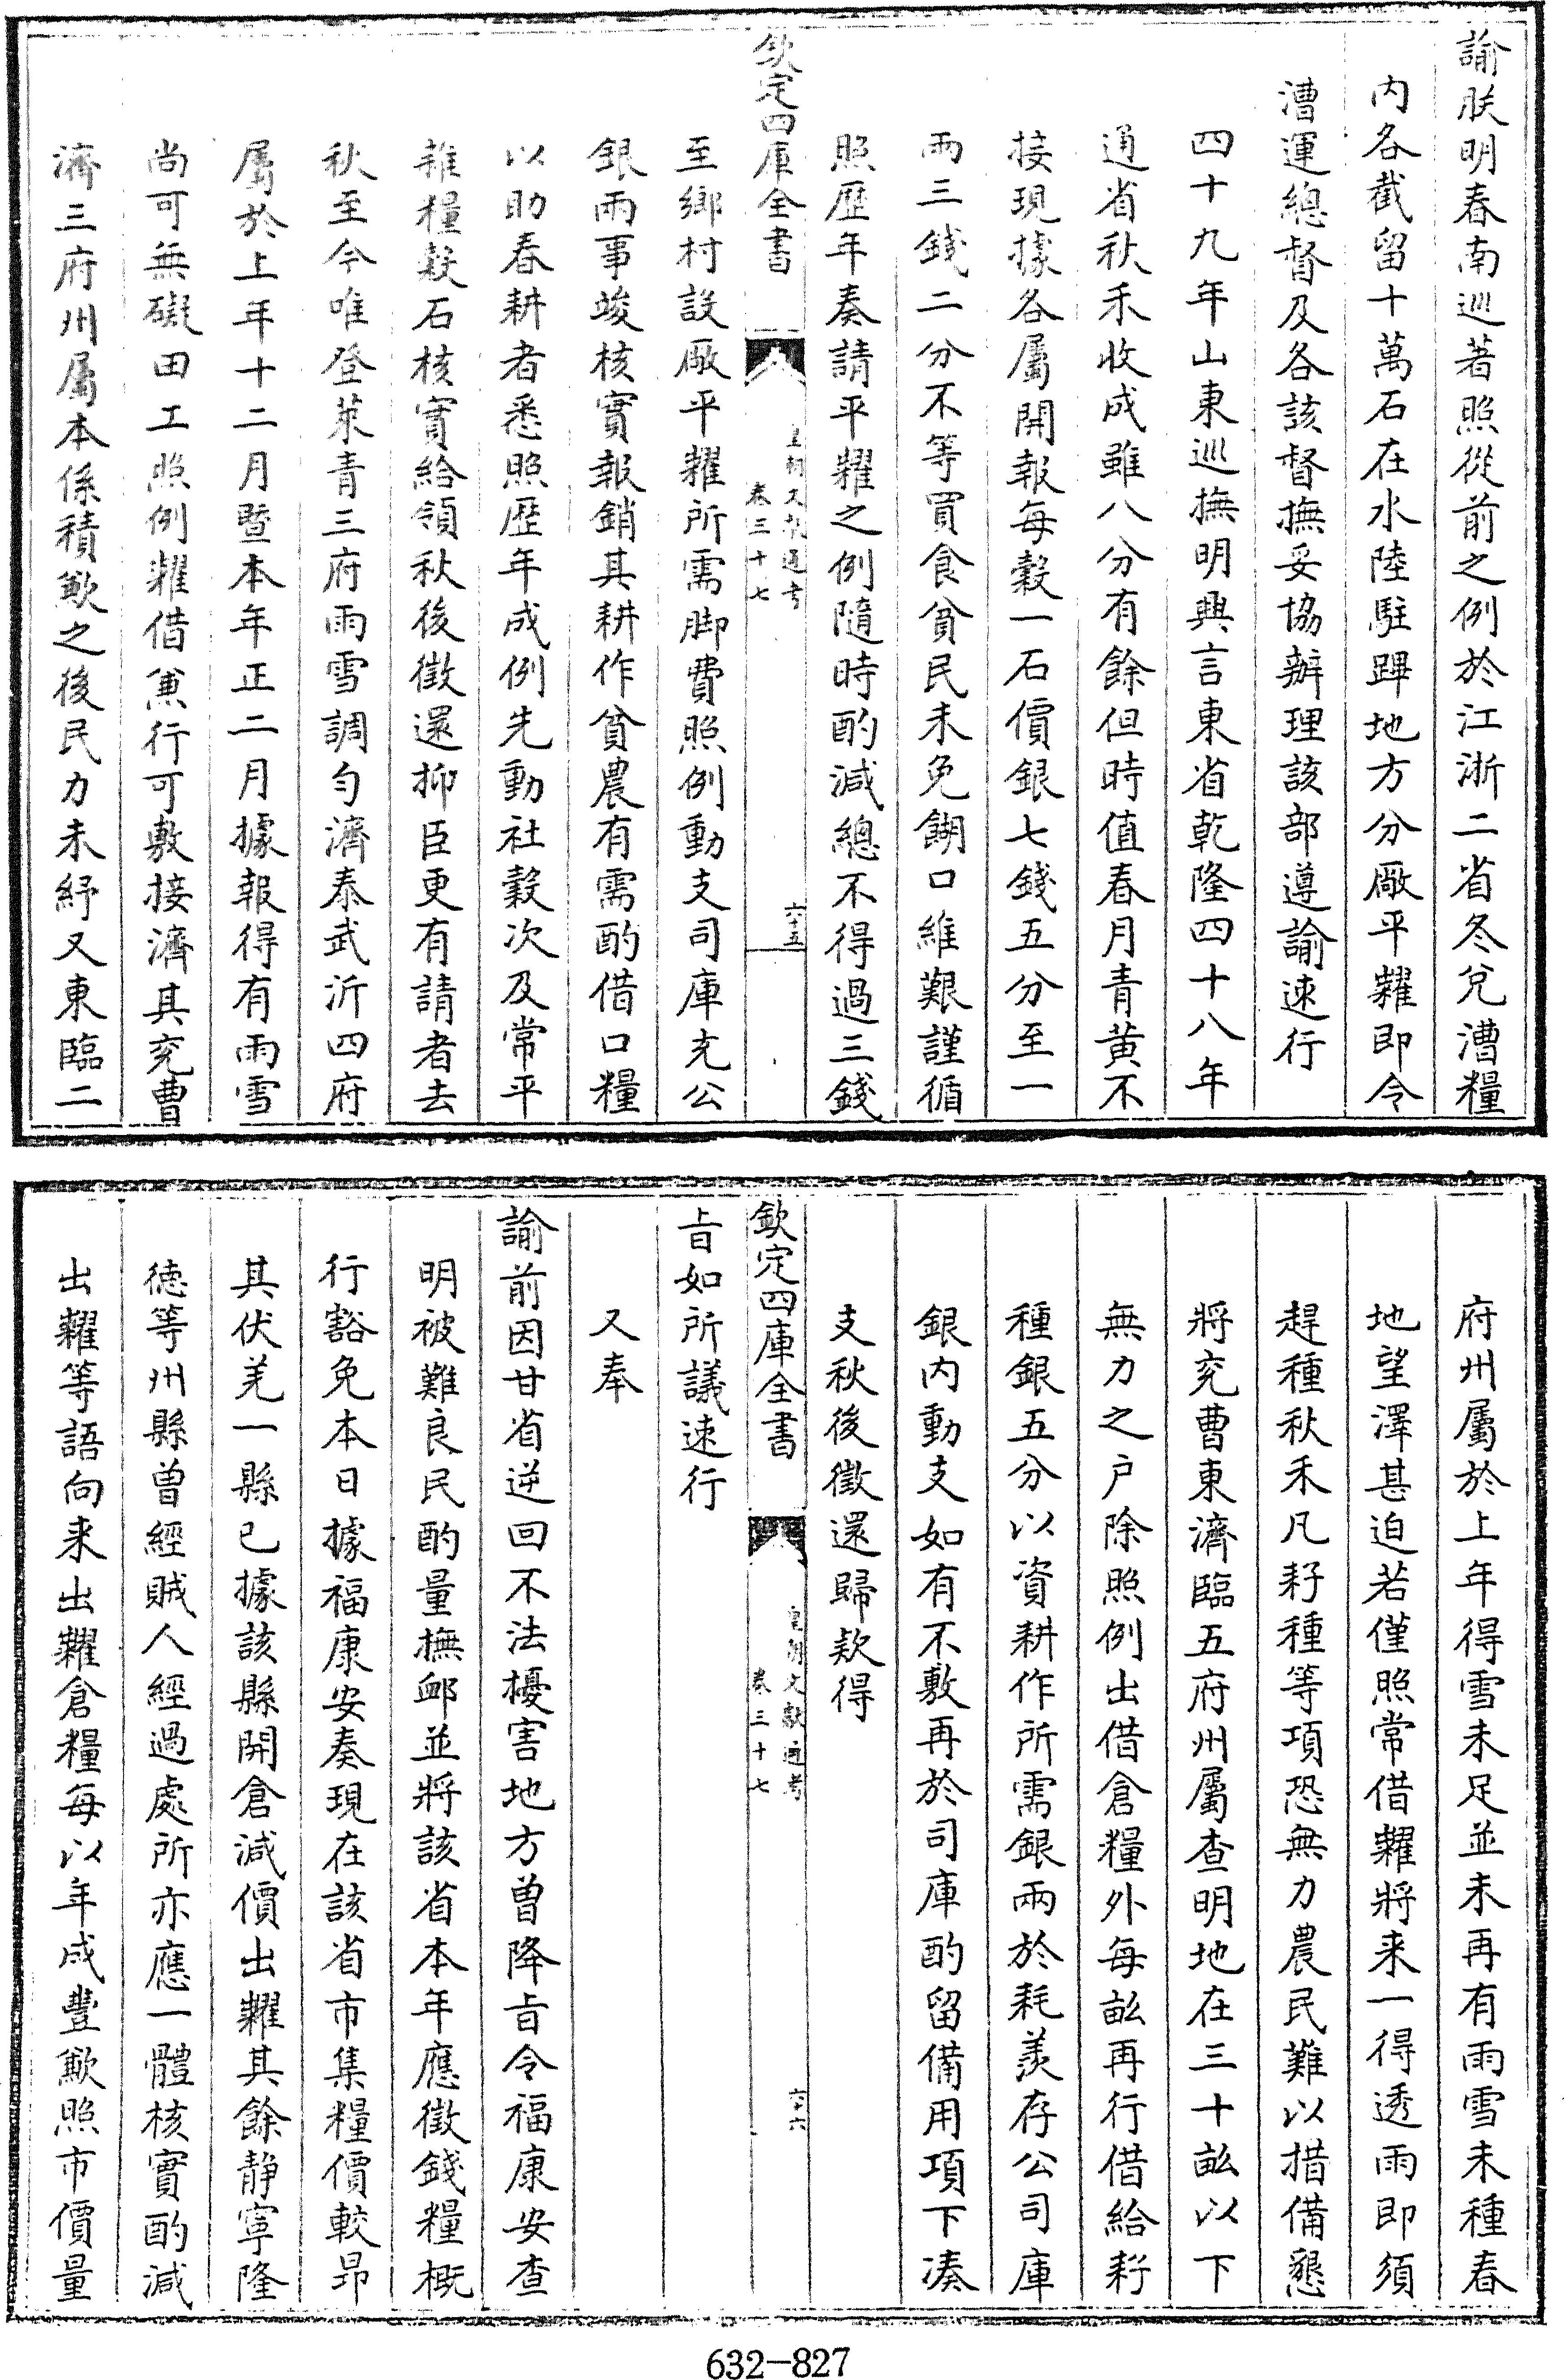 諭朕明春南巡著照從前之例於江浙二省冬兌漕糧
内各截留十萬石在水陸駐蹕地方分厰平糶即令
漕運總督及各該督撫妥協辦理該部遵諭速行
四十九年山東巡撫明興言東省乾隆四十八年
通省秋禾收成雖八分有餘但時值春月青黄不
接現據各屬開報每糓一石價銀七錢五分至一
兩三錢二分不等買食貧民未免餬口維艱謹循
照歷年奏請平糶之例隨時酌減總不得過三錢
欽定四庫全書
皇朝文獻通考
卷三十七
六十五
至鄉村設厰平糶所需脚費照例動支司庫充公
銀兩事竣核實報銷其耕作貧農有需酌借口糧
以助春耕者悉照歷年成例先動社糓次及常平
雜糧糓石核實給領秋後徵還抑臣更有請者去
秋至今唯登萊青三府雨雪調勻濟泰武沂四府
屬於上年十二月暨本年正二月據報得有雨雪
尚可無礙田工照例糶借兼行可敷接濟其兖曹
濟三府州屬本係積歉之後民力未紓又東臨二
府州屬於上年得雪未足並未再有雨雪未種春
地望澤甚迫若僅照常借糶將来一得透雨即須
趕種秋禾凡籽種等項恐無力農民難以措備懇
將兖曹東濟臨五府州屬查明地在三十畝以下
無力之户除照例出借倉糧外每畝再行借給籽
種銀五分以資耕作所需銀兩於耗羨存公司庫
銀内動支如有不敷再於司庫酌留備用項下湊
支秋後徵還歸欵得
欽定四庫全書
皇朝文獻通考
卷三十七
六十六
旨如所議速行
又奉
諭前因甘省逆回不法擾害地方曾降旨令福康安查
明被難良民酌量撫卹並將該省本年應徵錢糧概
行豁免本日據福康安奏現在該省市集糧價較昂
其伏羌一縣已據該縣開倉減價出糶其餘静寧隆
德等州縣曾經賊人經過處所亦應一體核實酌減
出糶等語向来出糶倉糧每以年成豐歉照市價量
632-827